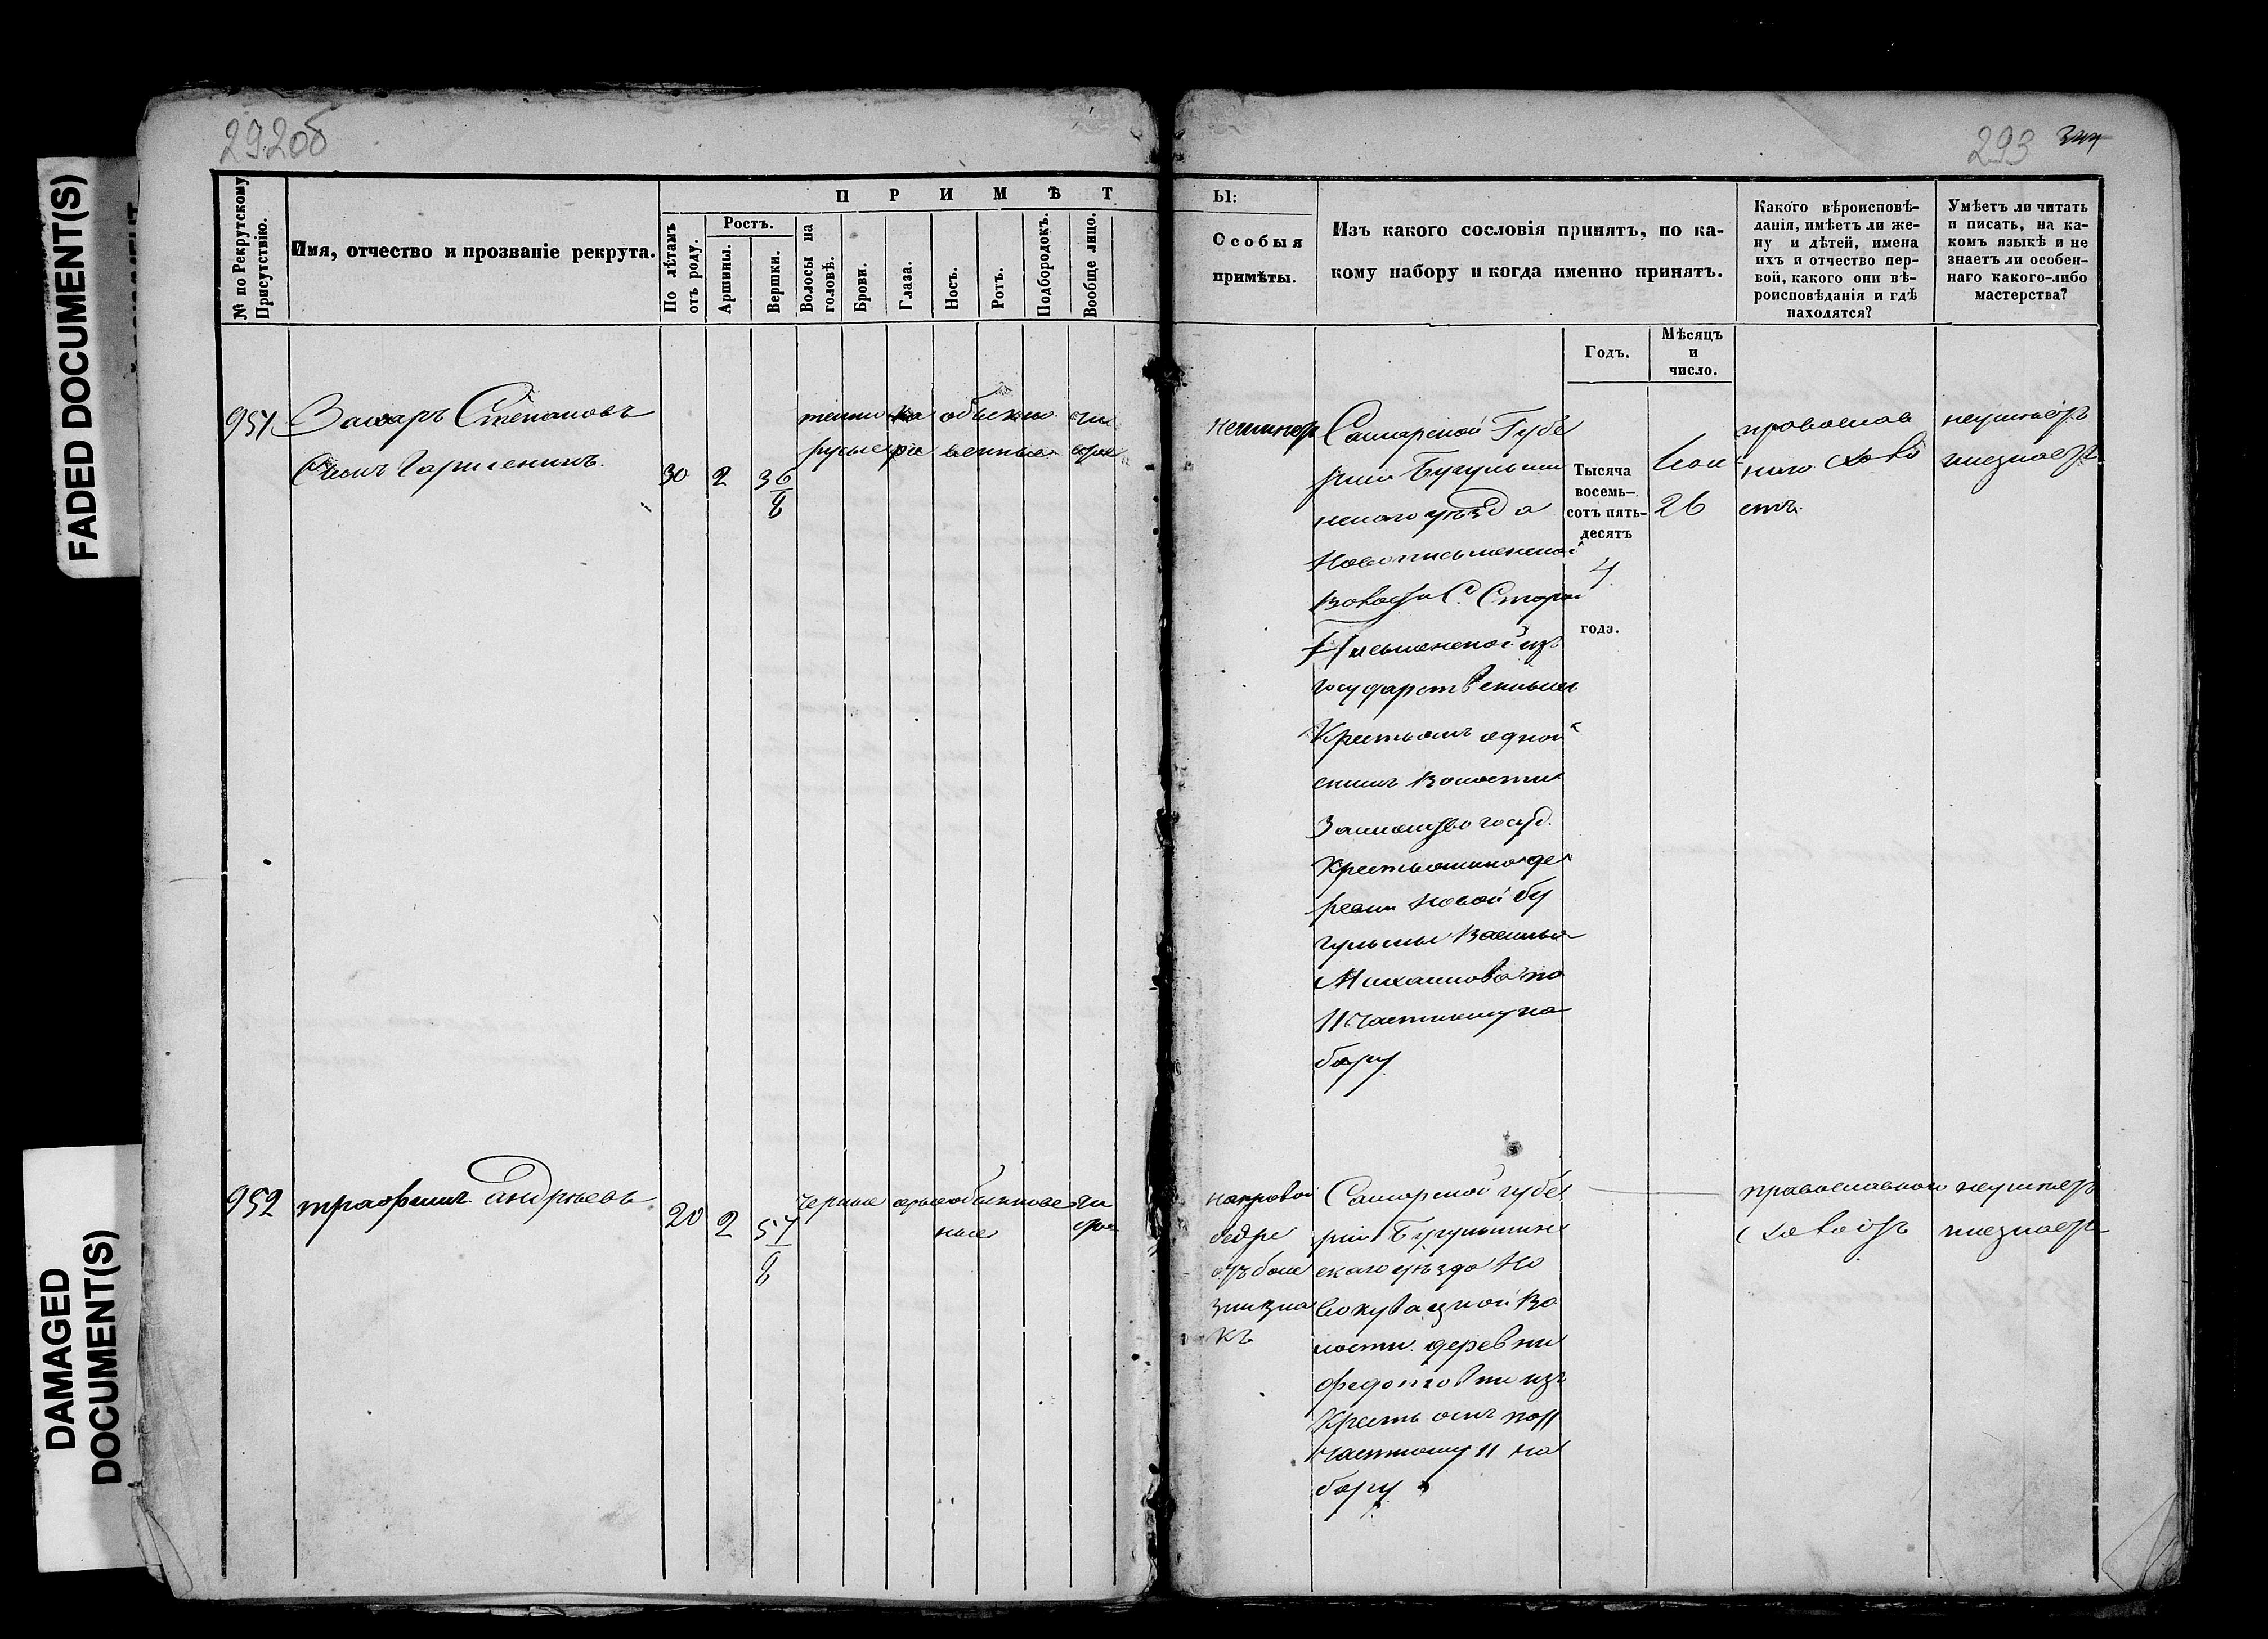 FADED DOCUMENT(S)
DAMAGED
DOCUMENT(S)
292об
293
№ по Рекрутскому
Присутствію.
Имя, отчество и прозваніе рекрута.
ПРИМѢТ
По лѣтамъ
отъ роду.
Ростъ.
Аршины.
Вершки.
Волосы на
головѣ.
Брови.
Глаза.
Носъ.
Ротъ.
Подбородокъ.
Вообще лицо.
Ы:
Особыя
примѣты.
Изъ какого сословія принятъ, по ка-
кому набору и когда именно принятъ.
Годъ.
Мѣсяцъ
и
число.
Какого вѣроисповѣ-
данія, имѣетъ ли же-
ну и дѣтей, имена
ихъ и отчество пер-
вой, какого они вѣ-
роисповѣданія и гдѣ
находятся?
Умѣетъ ли читать
и писать, на ка-
комъ языкѣ и не
знаетъ ли особен-
наго какого-либо
мастерства?
951
Захаръ Степановъ
30
2
3 6/8
темно
русые
ка
рие
обыкно
венные
чи
стое
неимѣетъ
Самарской Губе
рніи Бугульми
нскаго уѣзда
Новописьменской
волости С. Старо
Письменской изъ
государственныхъ
Крестьянъ одной
волости
госуд.
Крестьянина де
ревни Новой Бу
гульмы Василья
Михаилова по
11 частному на
бору
Тысяча
восемь-
сотъ пять-
десятъ
4
года.
26
православ
наго холо
стъ
неумѣетъ
незнаетъ
952
трофимъ Андреевъ
20
2
5 4/8
черные
серые
обыкновен
ные
чи
стое
на правой
бедре
отъ боле
зни зна
къ
Самарской губе
рніи Бугульмин
скаго уѣзда Но
вокувацкой во
лости деревни
Федотовки изъ
Крестьянъ по
частному 11 на
бору
православнаго
холостъ
неумѣетъ
незнаетъ